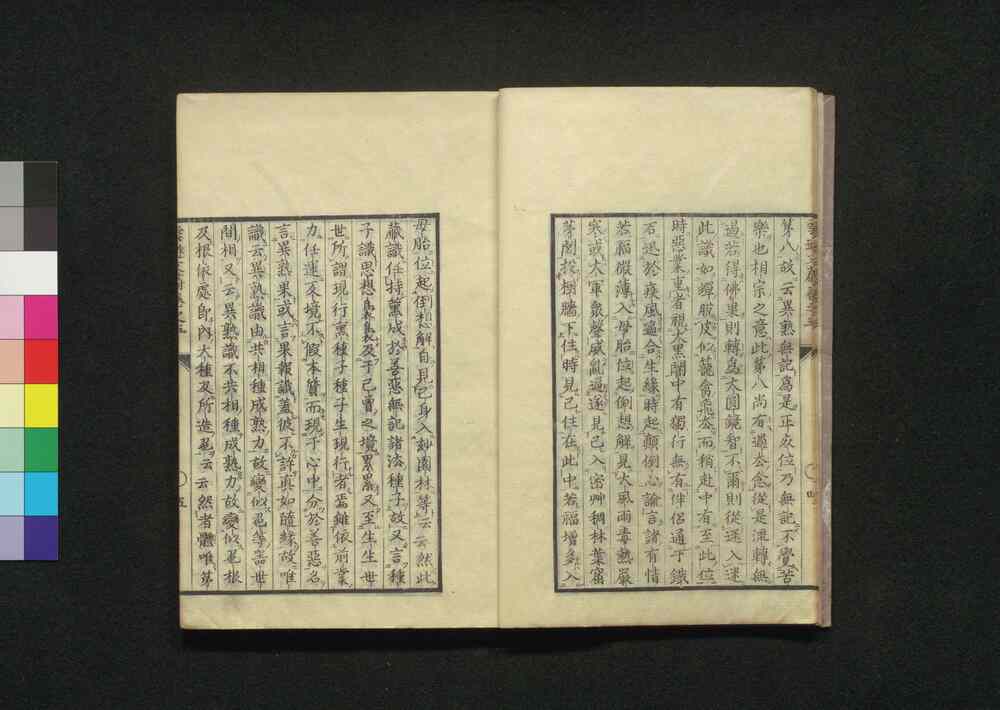 第八故云異熟無記爲是正友位乃無記不覺苦
樂也相宗之意此第八尚有過去念從是流轉無
過若得佛果則轉爲大圓鏡智不爾則從迷入迷
此識如蟬脫皮似籠禽飛去而稍赴中有至此位
時惡業重者視大黑闇中有獨行無有伴侶通于鐵
石迅於疾風逼合生緣時起顚倒心諭言諸有情
若福微薄入母胎位起倒想解見大風雨毒熱嚴
寒或大軍衆聲威亂逼遂見己入密艸稠林葉窟
茅閣投樹牆下住時見己住在此中若福增多入
母胎位起倒想解自見己身入妙園林等云云然此
藏識任持薰成於善惡無記諸法種子故又言種
子識思想裊裊及于己賣之境累累又至生生世
世所謂現行熏種子種子生現行者焉雖依前業
力任運不境不假本質而現于心中分於善惡名
言異熟果或言果報識蓋彼不許眞如隨緣故唯
識云異熟識由共相種成熟力故變似色等器世
閒相又云異熟識不共相種成熟力故變似色根
及根依處卽內大種及所造色云云然者雖唯第
五